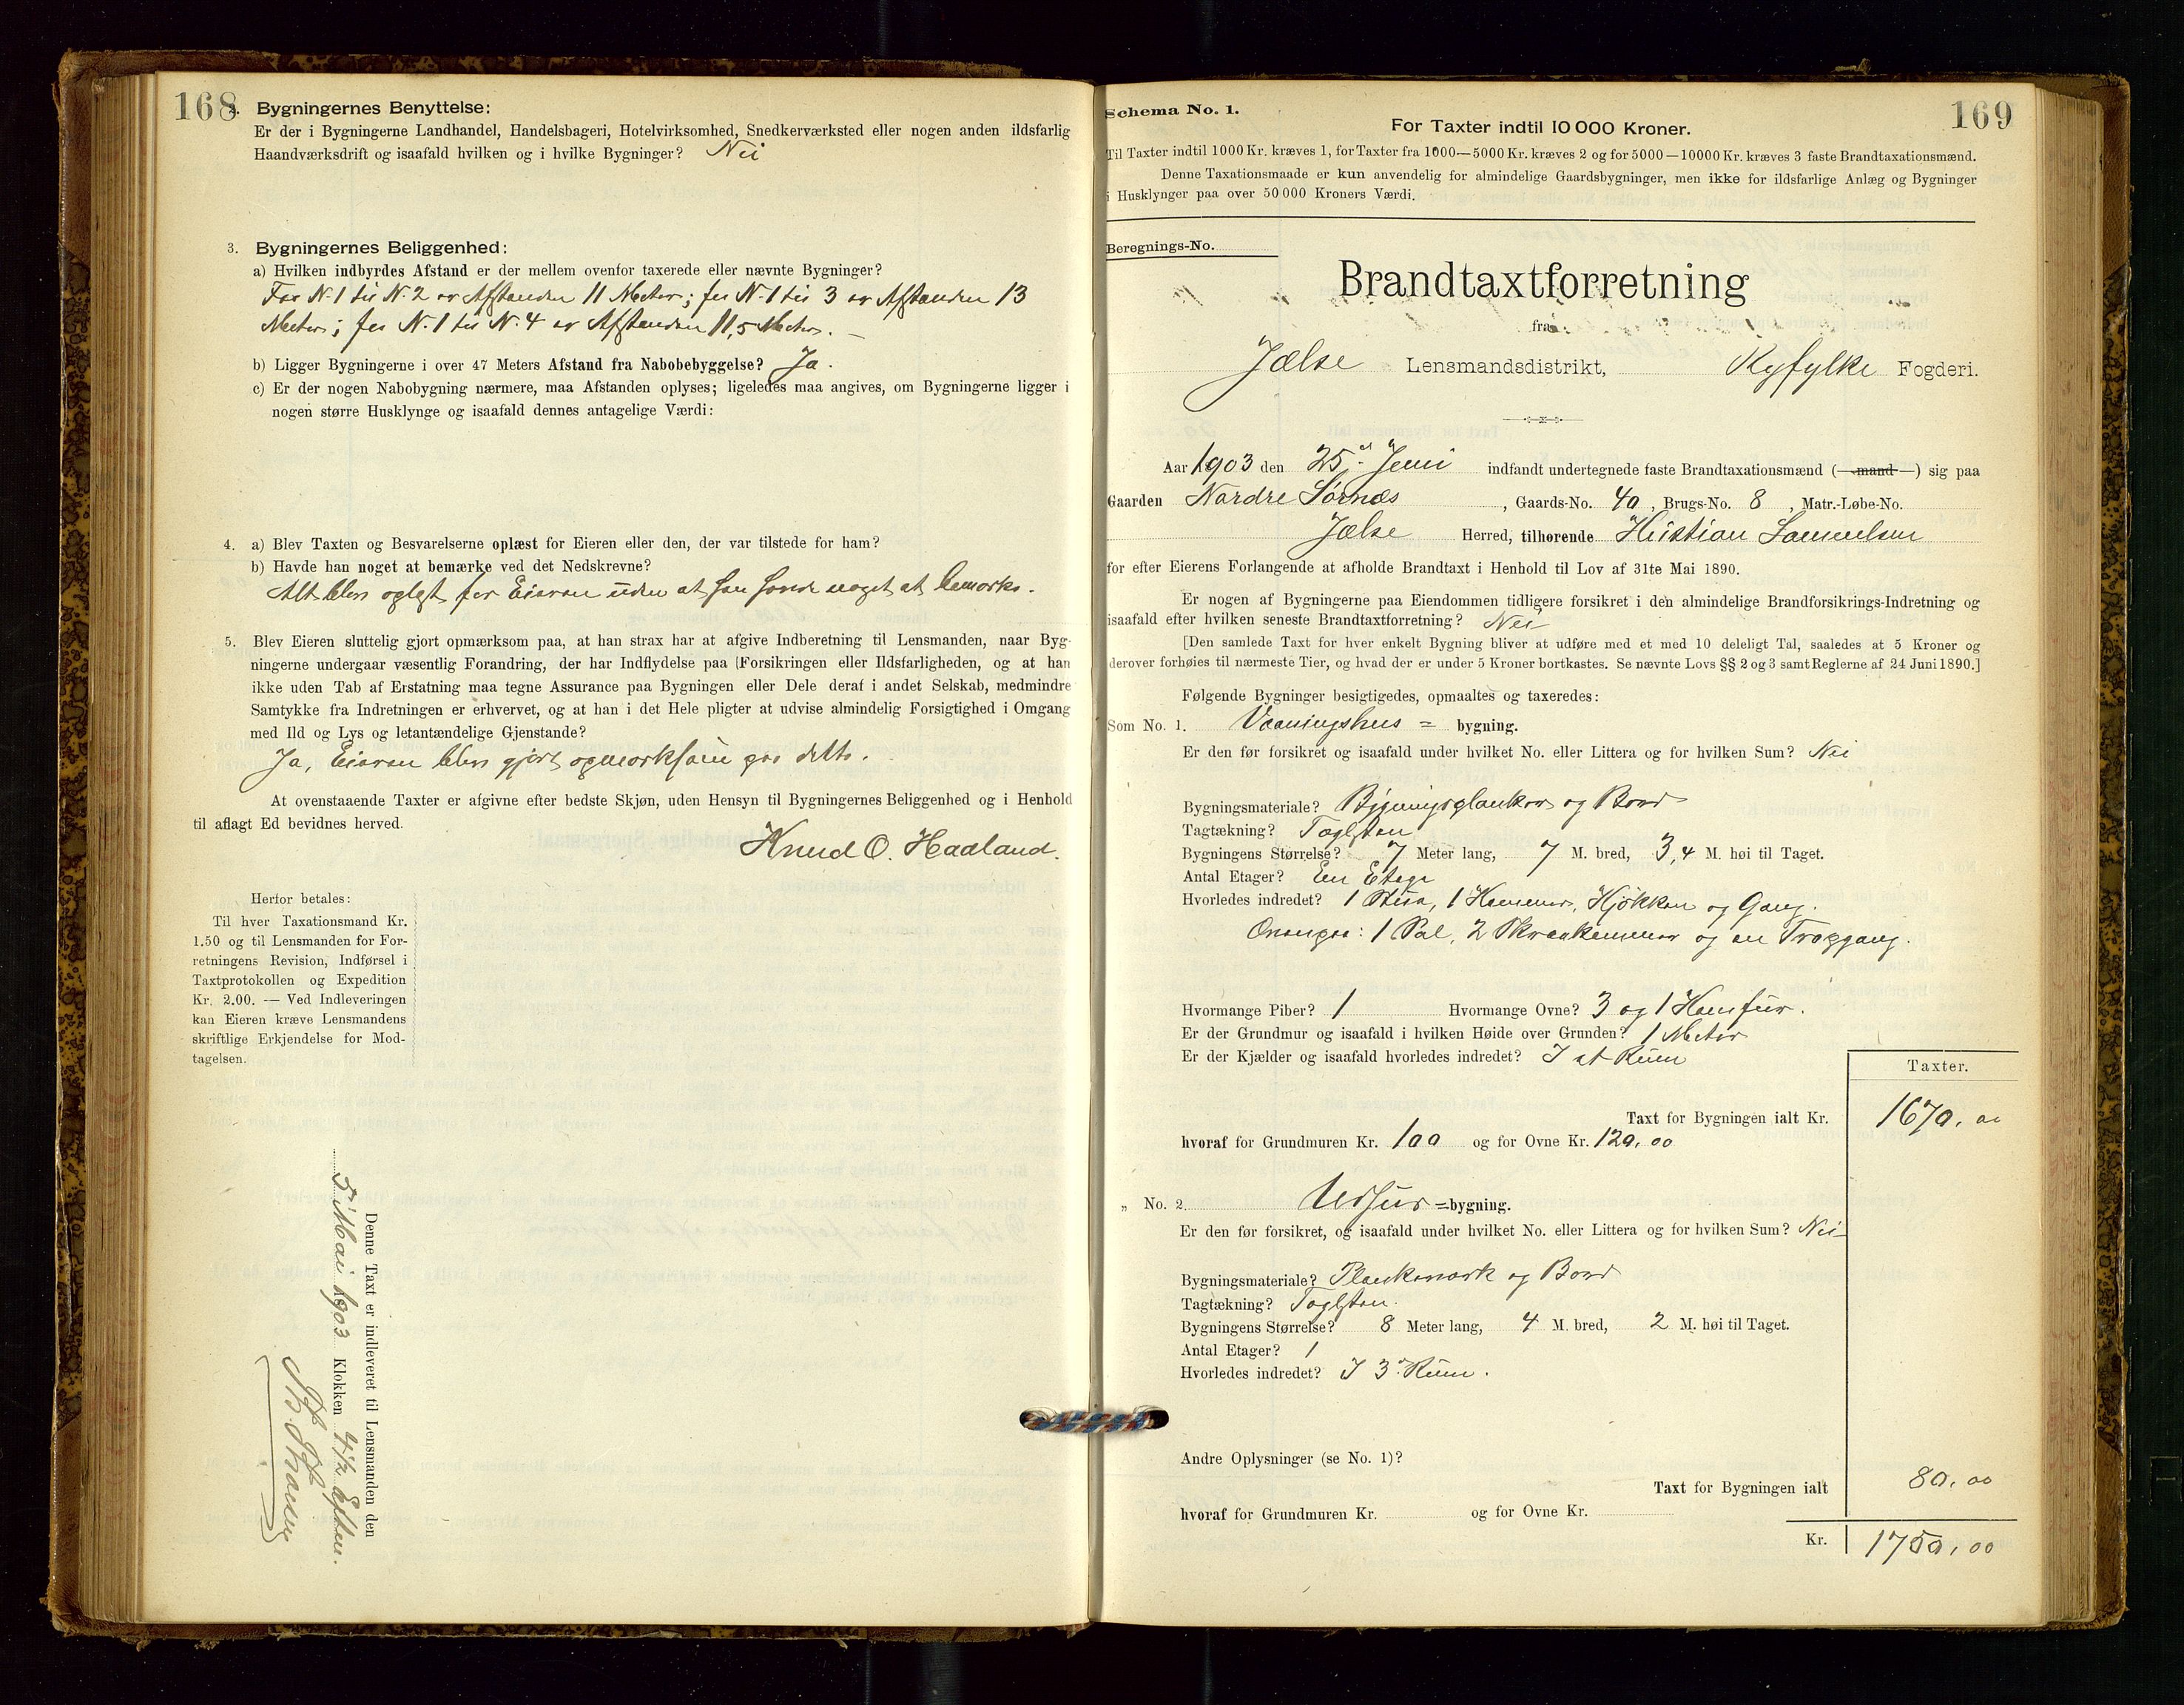 168
2. Bygningernes Benyttelse:
Er der i Bygningerne Landhandel, Handelsbageri, Hotelvirksomhed, Snedkerværksted eller nogen anden ildsfarlig
Haandværksdrift og isaafald hvilken og i hvilke Bygninger? Nei
3. Bygningernes Beliggenhed:
a) Hvilken indbyrdes Afstand er der mellem ovenfor taxerede eller nævnte Bygninger?
For N. 1 til N. 2 er Afstanden 11 Meter; fra N. 1 til 3 er Afstanden 13
Meter; fra N. 1 til N. 4 er Afstanden 11,5 Meter. —
b) Ligger Bygningerne i over 47 Meters Afstand fra Nabobebyggelse? Ja.
c) Er der nogen Nabobygning nærmere, maa Afstanden oplyses; ligeledes maa angives, om Bygningerne ligger i
nogen større Husklynge og isaafald dennes antagelige Værdi:
4. a) Blev Taxten og Besvarelserne oplæst for Eieren eller den, der var tilstede for ham?
b) Havde han noget at bemærke ved det Nedskrevne?
Alt blev oplæst for Eieren uden at han havde noget at bemærke.
5. Blev Eieren sluttelig gjort opmærksom paa, at han strax har at afgive Indberetning til Lensmanden, naar Byg-
ningerne undergaar væsentlig Forandring, der har Indflydelse paa (Forsikringen eller Ildsfarligheden, og at han
ikke uden Tab af Erstatning maa tegne Assurance paa Bygningen eller Dele deraf i andet Selskab, medmindre
Samtykke fra Indretningen er erhvervet, og at han i det Hele pligter at udvise almindelig Forsigtighed i Omgang
med Ild og Lys og letantændelige Gjenstande?
Ja, Eieren blev gjort opmærksom paa dette.
At ovenstaaende Taxter er afgivne efter bedste Skjøn, uden Hensyn til Bygningernes Beliggenhed og i Henhold
til aflagt Ed bevidnes herved.
Knud O. Haaland.
Herfor betales:
Til hver Taxationsmand Kr.
1.50 og til Lensmanden for For-
retningens Revision, Indførsel i
Taxtprotokollen og Expedition
Kr. 2.00. — Ved Indleveringen
kan Eieren kræve Lensmandens
skriftlige Erkjendelse for Mod-
tagelsen.
Denne Taxt er indleveret til Lensmanden den
5 Mai 1903 Klokken 4 1/2 Efterm.
169
Schema No. 1.
For Taxter indtil 10 000 Kroner.
Til Taxter indtil 1000 Kr. kræves 1, for Taxter fra 1000—5000 Kr. kræves 2 og for 5000—10000 Kr. kræves 3 faste Brandtaxationsmænd.
Denne Taxationsmaade er kun anvendelig for almindelige Gaardsbygninger, men ikke for ildsfarlige Anlæg og Bygninger
i Husklynger paa over 50 000 Kroners Værdi.
Beregnings-No.
Brandtaxtforretning
fra
Jælse Lensmandsdistrikt, Ryfylke Fogderi.
Aar 1903 den 25. Juni indfandt undertegnede faste Brandtaxationsmænd (—mand—) sig paa
Gaarden Nordre Sørnæs, Gaards-No. 40, Brugs-No. 8, Matr.-Løbe-No.
Jælse Herred, tilhørende Kristian Samuelsen
for efter Eierens Forlangende at afholde Brandtaxt i Henhold til Lov af 31te Mai 1890.
Er nogen af Bygningerne paa Eiendommen tidligere forsikret i den almindelige Brandforsikrings-Indretning og
isaafald efter hvilken seneste Brandtaxtforretning? Nei
[Den samlede Taxt for hver enkelt Bygning bliver at udføre med et med 10 deleligt Tal, saaledes at 5 Kroner og
derover forhøies til nærmeste Tier, og hvad der er under 5 Kroner bortkastes. Se nævnte Lovs §§ 2 og 3 samt Reglerne af 24 Juni 1890.]
Følgende Bygninger besigtigedes, opmaaltes og taxeredes:
Som No. 1. Vaaningshus = bygning.
Er den før forsikret og isaafald under hvilket No. eller Littera og for hvilken Sum? Nei
Bygningsmateriale? Bygningsplanker og Bord
Tagtækning? Taglsten
Bygningens Størrelse? 7 Meter lang, 7 M. bred, 3,4 M. høi til Taget.
Antal Etager? Een Etage
Hvorledes indredet? 1 Stua, 1 Kammer, Kjøkken og Gang.
Ovenpaa: 1 Sal, 2 Skraakammer og en Trapgang.
Hvormange Piber? 1 Hvormange Ovne? 3 og 1 Komfur.
Er der Grundmur og isaafald i hvilken Høide over Grunden? 1 Meter
Er der Kjælder og isaafald hvorledes indredet? I et Rum
Taxter.
Taxt for Bygningen ialt Kr. 1670,00
hvoraf for Grundmuren Kr. 100 og for Ovne Kr. 120,00
„ No. 2. Udhus = bygning.
Er den før forsikret, og isaafald under hvilket No. eller Littera og for hvilken Sum? Nei
Bygningsmateriale? Plankeværk og Bord
Tagtækning? Taglsten.
Bygningens Størrelse? 8 Meter lang, 4 M. bred, 2 M. høi til Taget.
Antal Etager? 1
Hvorledes indredet? I 3 Rum.
Andre Oplysninger (se No. 1)?
Taxt for Bygningen ialt 80,00
hvoraf for Grundmuren Kr. og for Ovne Kr.
Kr. 1750,00